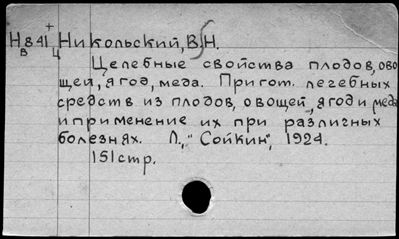 Н841 Никольский, В.Н.
в ц
Целебные свойства плодов, ово
щей, ягод, меда. Пригот. лечебных
средств из плодов, овощей, ягод и меда
и применение их при различных
болезнях. Л., "Сойкин", 1924.
151 стр.